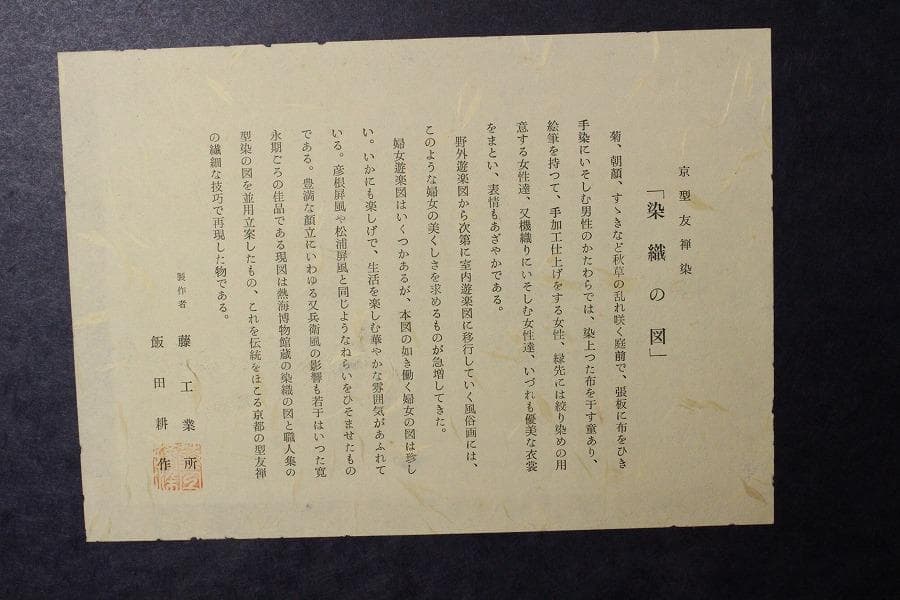 京型友禅染
「染織の図」
菊、朝顔、すゝきなど秋草の乱れ咲く庭前で、張板に布をひき
手染にいそしむ男性のかたわらでは、染上つた布を干す童あり、
絵筆を持つて、手加工仕上げをする女性、緑先には絞り染めの用
意する女性達、又機織りにいそしむ女性達、いづれも優美な衣裳
をまとい、表情もあざやかである。
野外遊楽図から次第に室内遊楽図に移行していく風俗画には、
このような婦女の美くしさを求めるものが急増してきた。
婦女遊楽図はいくつかあるが、本図の如き働く婦女の図は珍し
い。いかにも楽しげで、生活を楽しむ華やかな雰囲気があふれて
いる。彦根屏風や松浦屏風と同じようなねらいをひそませたもの
である。豊満な顔立にいわゆる又兵衛風の影響も若干はいつた寛
永期ごろの佳品である現図は熱海博物館蔵の染織の図と職人集の
型染の図を並用立案したもの、これを伝統をほこる京都の型友禅
の繊細な技巧で再現した物である。
製作者 藤工業所
飯田耕作